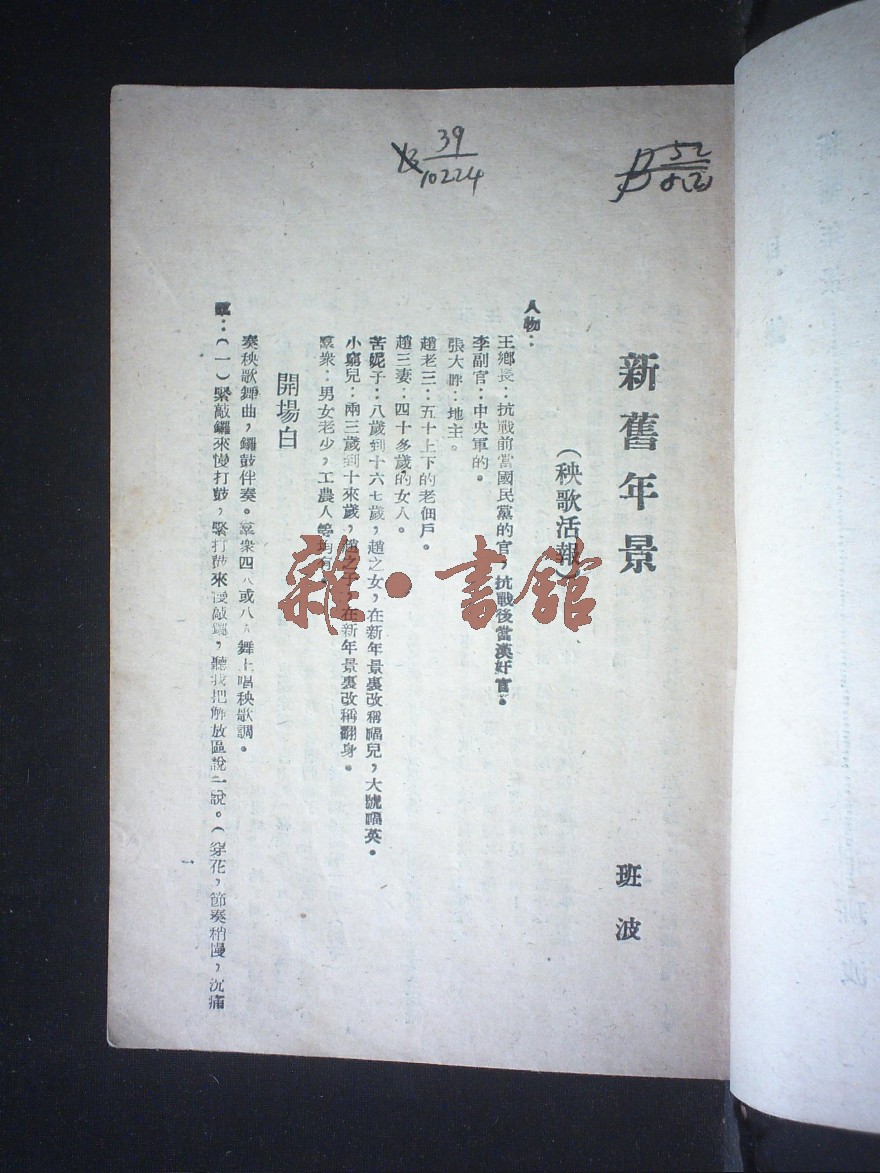 39
10224
52
新舊年景
班波
（秧歌活報）
人物：
王鄉長：抗戰前當國民黨的官，抗戰後當漢奸官。
李副官：中央軍的。
張大胖：地主。
趙老三：五十上下的老佃戶。
趙三妻：四十多歲的女人。
苦妮子：八歲到十六七歲，趙之女，在新年景裏改稱福兒，大號福英。
小窮兒：兩三歲到十來歲，趙之子，在新年景裏改稱翻身。
羣衆：男女老少，工農人等均有
開場白
奏秧歌舞曲，鑼鼓伴奏。羣衆四人或八人舞上唱秧歌調。
羣：（一）緊敲鑼來慢打鼓，緊打鼓來慢敲鑼，聽我把解放區說一說。（穿花，節奏稍慢，沉痛
一
雜·書館